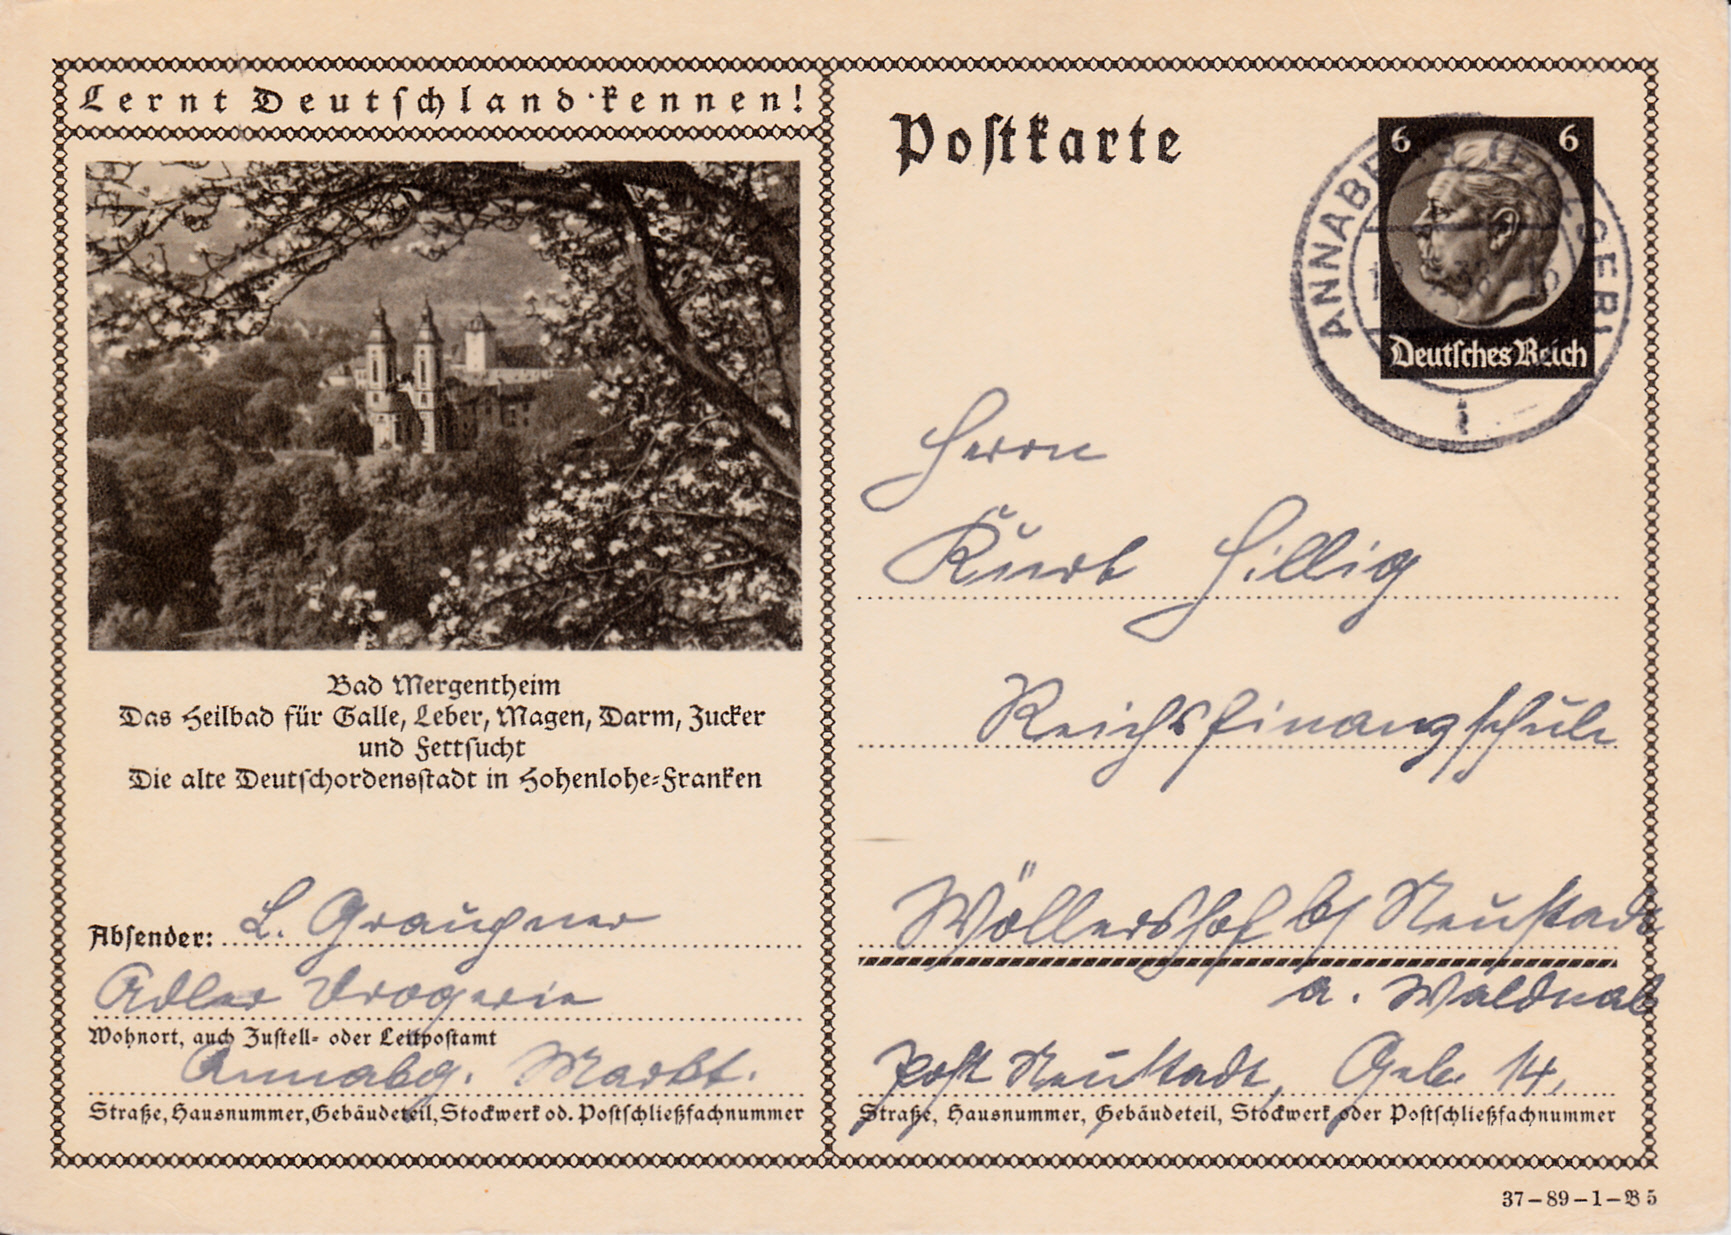 Lernt Deutschland kennen!
Bad Mergentheim
Das Heilbad für Galle, Leber, Magen, Darm, Zucker
und Fettsucht
Die alte Deutschordensstadt in Hohenlohe-Franken
Absender: L. Graupner
Adler Drogerie
Wohnort, auch Zustell- oder Leitpostamt
Annabg. Markt.
Straße, Hausnummer, Gebäudeteil, Stockwerk od. Postschließfachnummer
Postkarte
6 6
Deutsches Reich
Herrn
Kurt Hillig
Reichsfinanzschule
Wöllershof b/ Neustadt
a. Waldnab
Post Neustadt, Geb. 14,
Straße, Hausnummer, Gebäudeteil, Stockwerk oder Postschließfachnummer
37-89-1-B 5